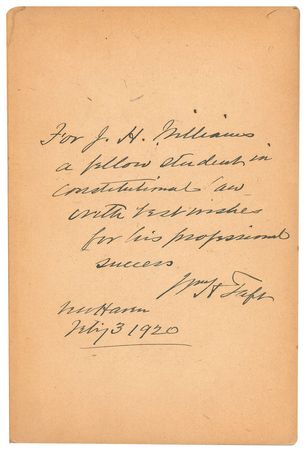 For J. H. Williams
a fellow student in
Constitutional law
with best wishes
for his professional
success
Wm H Taft
New Haven
Feby 3 1920